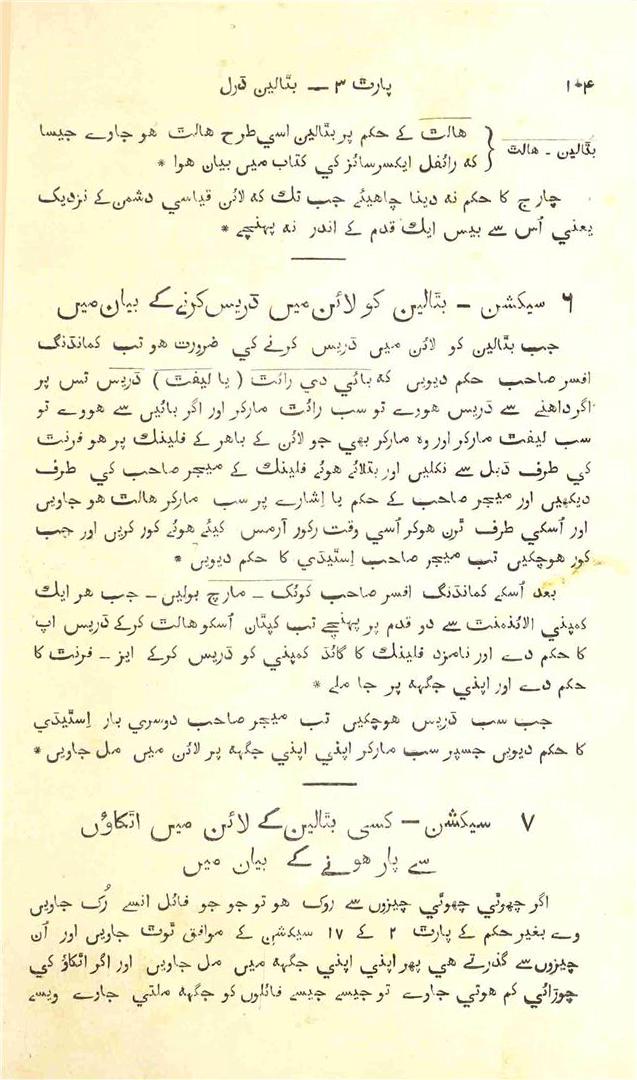 ۱۰۴ پارٹ ۳ — بٹالین ڈرل
بٹالین - ھالٹ
ھالٹ کے حکم پر بٹالین اسي طرح ھالٹ ھو جاوے جیسا
که رائفل ایکسرسائز کي کتاب میں بیان ھوا *
چارج کا حکم نه دینا چاھیئے جب تک که لائن قیاسي دشمن کے نزدیک
یعني اُس سے بیس ایک قدم کے اندر نه پہنچے *
۶ سیکشن — بٹالین کو لائن میں ڈریس کرنے کے بیان میں
جب بٹالین کو لائن میں ڈریس کرنے کي ضرورت ھو تب کمانڈنگ
افسر صاحب حکم دیویں که بائي دي رائٹ ( یا لیفٹ ) ڈریس تس پر
اگر داھنے سے ڈریس ھووے تو سب رائٹ مارکر اور اگر بائیں سے ھووے تو
سب لیفٹ مارکر اور وہ مارکر بھي جو لائن کے باھر کے فلینک پر ھو فرنٹ
کي طرف ڈبل سے نکلیں اور بتلائے ھوئے فلینک کے میجر صاحب کي طرف
دیکھیں اور میجر صاحب کے حکم یا اِشارے پر سب مارکر ھالٹ ھو جاویں
اور اُسکي طرف ٹرن ھوکر اُسي وقت رکور آرمس کیئے ھوئے کور کریں اور جب
کور ھوچکیں تب میجر صاحب اِسٹیڈي کا حکم دیویں *
بعد اُسکے کمانڈنگ افسر صاحب کوئک — مارچ بولیں — جب ھر ایک
کمپني الائنمنٹ سے دو قدم پر پہنچے تب کپتان اُسکو ھالٹ کرکے ڈریس اپ
کا حکم دے اور نامزد فلینک کا گائڈ کمپني کو ڈریس کرکے ایز — فرنٹ کا
حکم دے اور اپني جگہہ پر جا ملے *
جب سب ڈریس ھوچکیں تب میجر صاحب دوسري بار اِسٹیڈي
کا حکم دیویں جسپر سب مارکر اپني اپني جگہہ پر لائن میں مل جاویں *
۷ سیکشن — کسی بٹالین کے لائن میں اٹکاؤں
سے پار ھونے کے بیان میں
اگر چھوٹي چھوٹي چیزوں سے روک ھو تو جو جو فائل انسے رُک جاویں
وے بغیر حکم کے پارٹ ۲ کے ۱۷ سیکشن کے موافق ٹوٹ جاویں اور اُن
چیزوں سے گذرتے ھي پھر اپني اپني جگہہ میں مل جاویں اور اگر اٹکاؤ کي
چوڑائي کم ھوتي جاوے تو جیسے جیسے فائلوں کو جگہہ ملتي جاوے ویسے